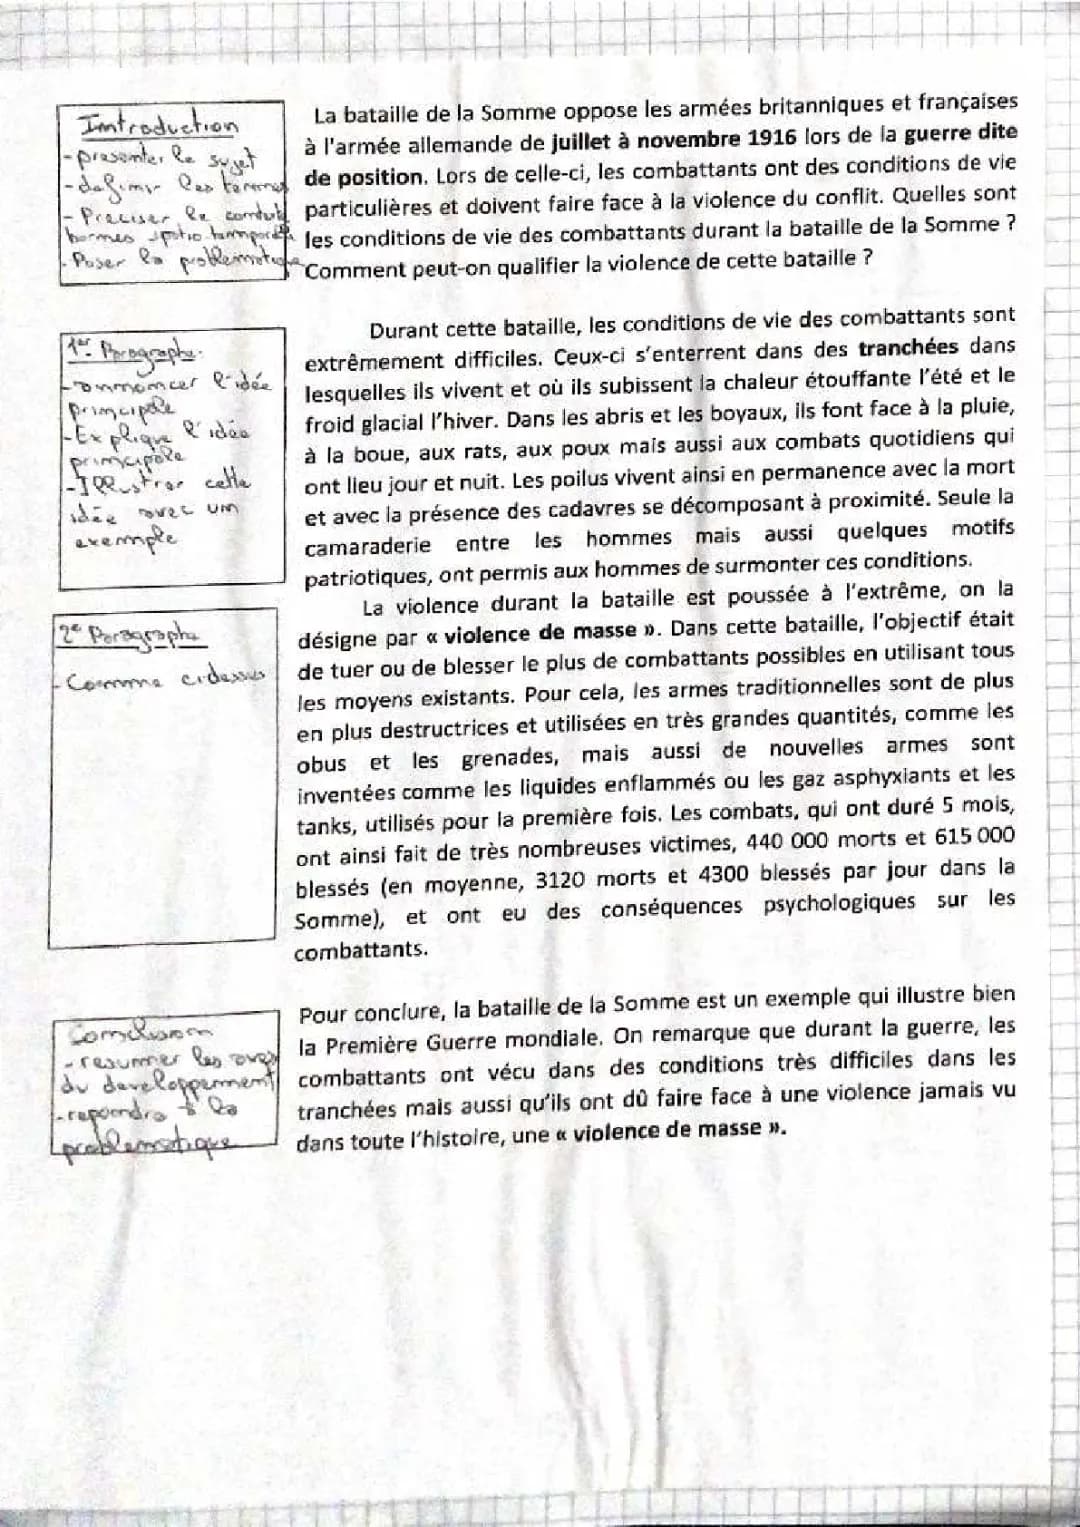 Introduction
- presenter le sujet
- definir les termes
- Preciser le
bornes spatio temporels
- Poser la problematique
La bataille de la Somme oppose les armées britanniques et françaises
à l'armée allemande de juillet à novembre 1916 lors de la guerre dite
de position. Lors de celle-ci, les combattants ont des conditions de vie
particulières et doivent faire face à la violence du conflit. Quelles sont
les conditions de vie des combattants durant la bataille de la Somme ?
Comment peut-on qualifier la violence de cette bataille ?
1er Paragraphe
- annoncer l'idée
principale
- Explique l'idée
principale
- Illustrer cette
idée avec un
exemple
Durant cette bataille, les conditions de vie des combattants sont
extrêmement difficiles. Ceux-ci s'enterrent dans des tranchées dans
lesquelles ils vivent et où ils subissent la chaleur étouffante l'été et le
froid glacial l'hiver. Dans les abris et les boyaux, ils font face à la pluie,
à la boue, aux rats, aux poux mais aussi aux combats quotidiens qui
ont lieu jour et nuit. Les poilus vivent ainsi en permanence avec la mort
et avec la présence des cadavres se décomposant à proximité. Seule la
camaraderie entre les hommes mais aussi quelques motifs
patriotiques, ont permis aux hommes de surmonter ces conditions.
2e Paragraphe
- Comme cidessus
La violence durant la bataille est poussée à l'extrême, on la
désigne par « violence de masse ». Dans cette bataille, l'objectif était
de tuer ou de blesser le plus de combattants possibles en utilisant tous
les moyens existants. Pour cela, les armes traditionnelles sont de plus
en plus destructrices et utilisées en très grandes quantités, comme les
obus et les grenades, mais aussi de nouvelles armes sont
inventées comme les liquides enflammés ou les gaz asphyxiants et les
tanks, utilisés pour la première fois. Les combats, qui ont duré 5 mois,
ont ainsi fait de très nombreuses victimes, 440 000 morts et 615 000
blessés (en moyenne, 3120 morts et 4300 blessés par jour dans la
Somme), et ont eu des conséquences psychologiques sur les
combattants.
Conclusion
- resumer les axes
du developpement
- repondre à la
problematique
Pour conclure, la bataille de la Somme est un exemple qui illustre bien
la Première Guerre mondiale. On remarque que durant la guerre, les
combattants ont vécu dans des conditions très difficiles dans les
tranchées mais aussi qu'ils ont dû faire face à une violence jamais vu
dans toute l'histoire, une « violence de masse ».